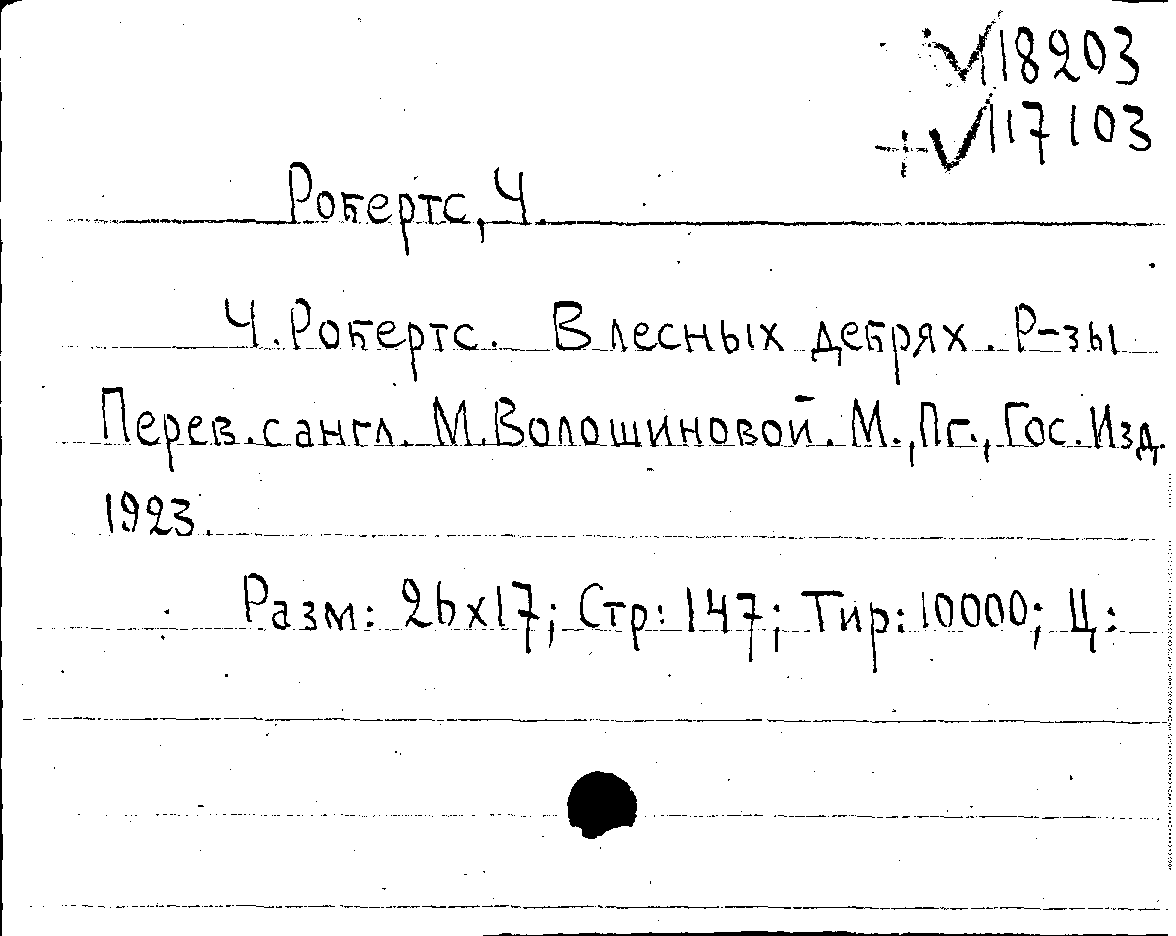 √118203
+√117103
Робертс, Ч.
Ч. Робертс. В лесных дебрях. Р-зы
Перев. с англ. М. Волошиновой. М., Пг., Гос. Изд.
1923.
Разм: 26x17; Стр: 147; Тир: 10000; Ц: